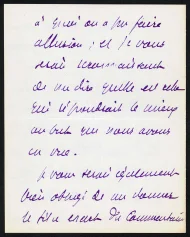 à quoi on a pu faire
allusion ; et je vous
serai reconnaissant
de me dire quelle est celle
qui répondrait le mieux
au but que nous avons
en vue.
Je vous serai également
très obligé de me donner
le titre exact du Commentaire